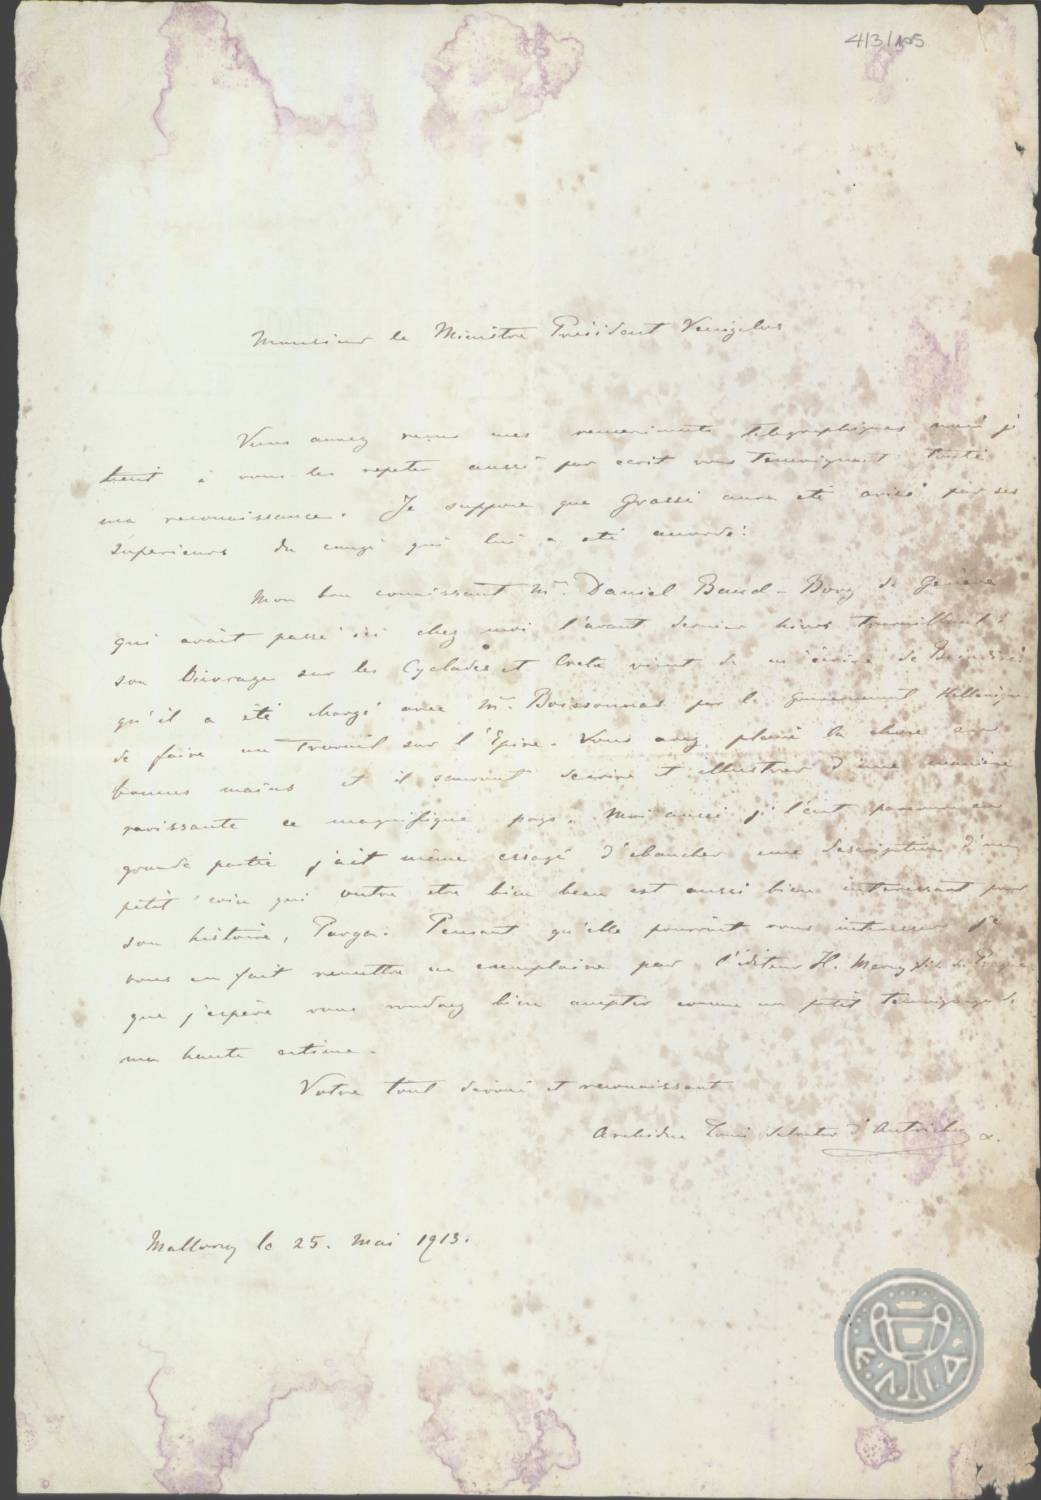 4/3/105
Monsieur le Ministre Président Venizelos
Vous aurez reçu mes remerciments telegraphiques mais j
tient à vous les repeter aussi par ecrit vous temoignant toute
ma reconaissance. Je suppose que Grassi aura eté avisé par ses
superieurs du congé qui lui a eté accordé.
Mon bon conaissant Mr. Daniel Baud-Bovy de Genève
qui avait passé ici chez moi l'avant dernier hiver travaillant à
son Ouvrage sur les Cyclades et Crete vient de m'écrire de
qu'il a été chargé avec Mr. Boissonnas par le Gouvernement Hellenique
de faire un travail sur l'Epire. Vous avez placé la chose en
bonnes mains et il sauront decrire et illustrer d'une manière
ravissante ce magnifique pays. Moi aussi j l'ait parcouru en
grande partie j'ait même essayé d'ebaucher une description d'un
petit coin qui outre etre bien beau est aussi bien interessant pour
son histoire, Parga. Pensant qu'elle pourrait vous interesser je
vous en fait remettre un exemplaire par l'éditeur H. Mercy Sohn de Prague
que j'espère vous voudrez bien accepter comme un petit temoignage de
ma haute estime.
Votre tout devoué et reconaissant
Archiduc Louis Salvator d'Autriche
Mallorca le 25. Mai 1913.
Ε.Λ.Ι.Α